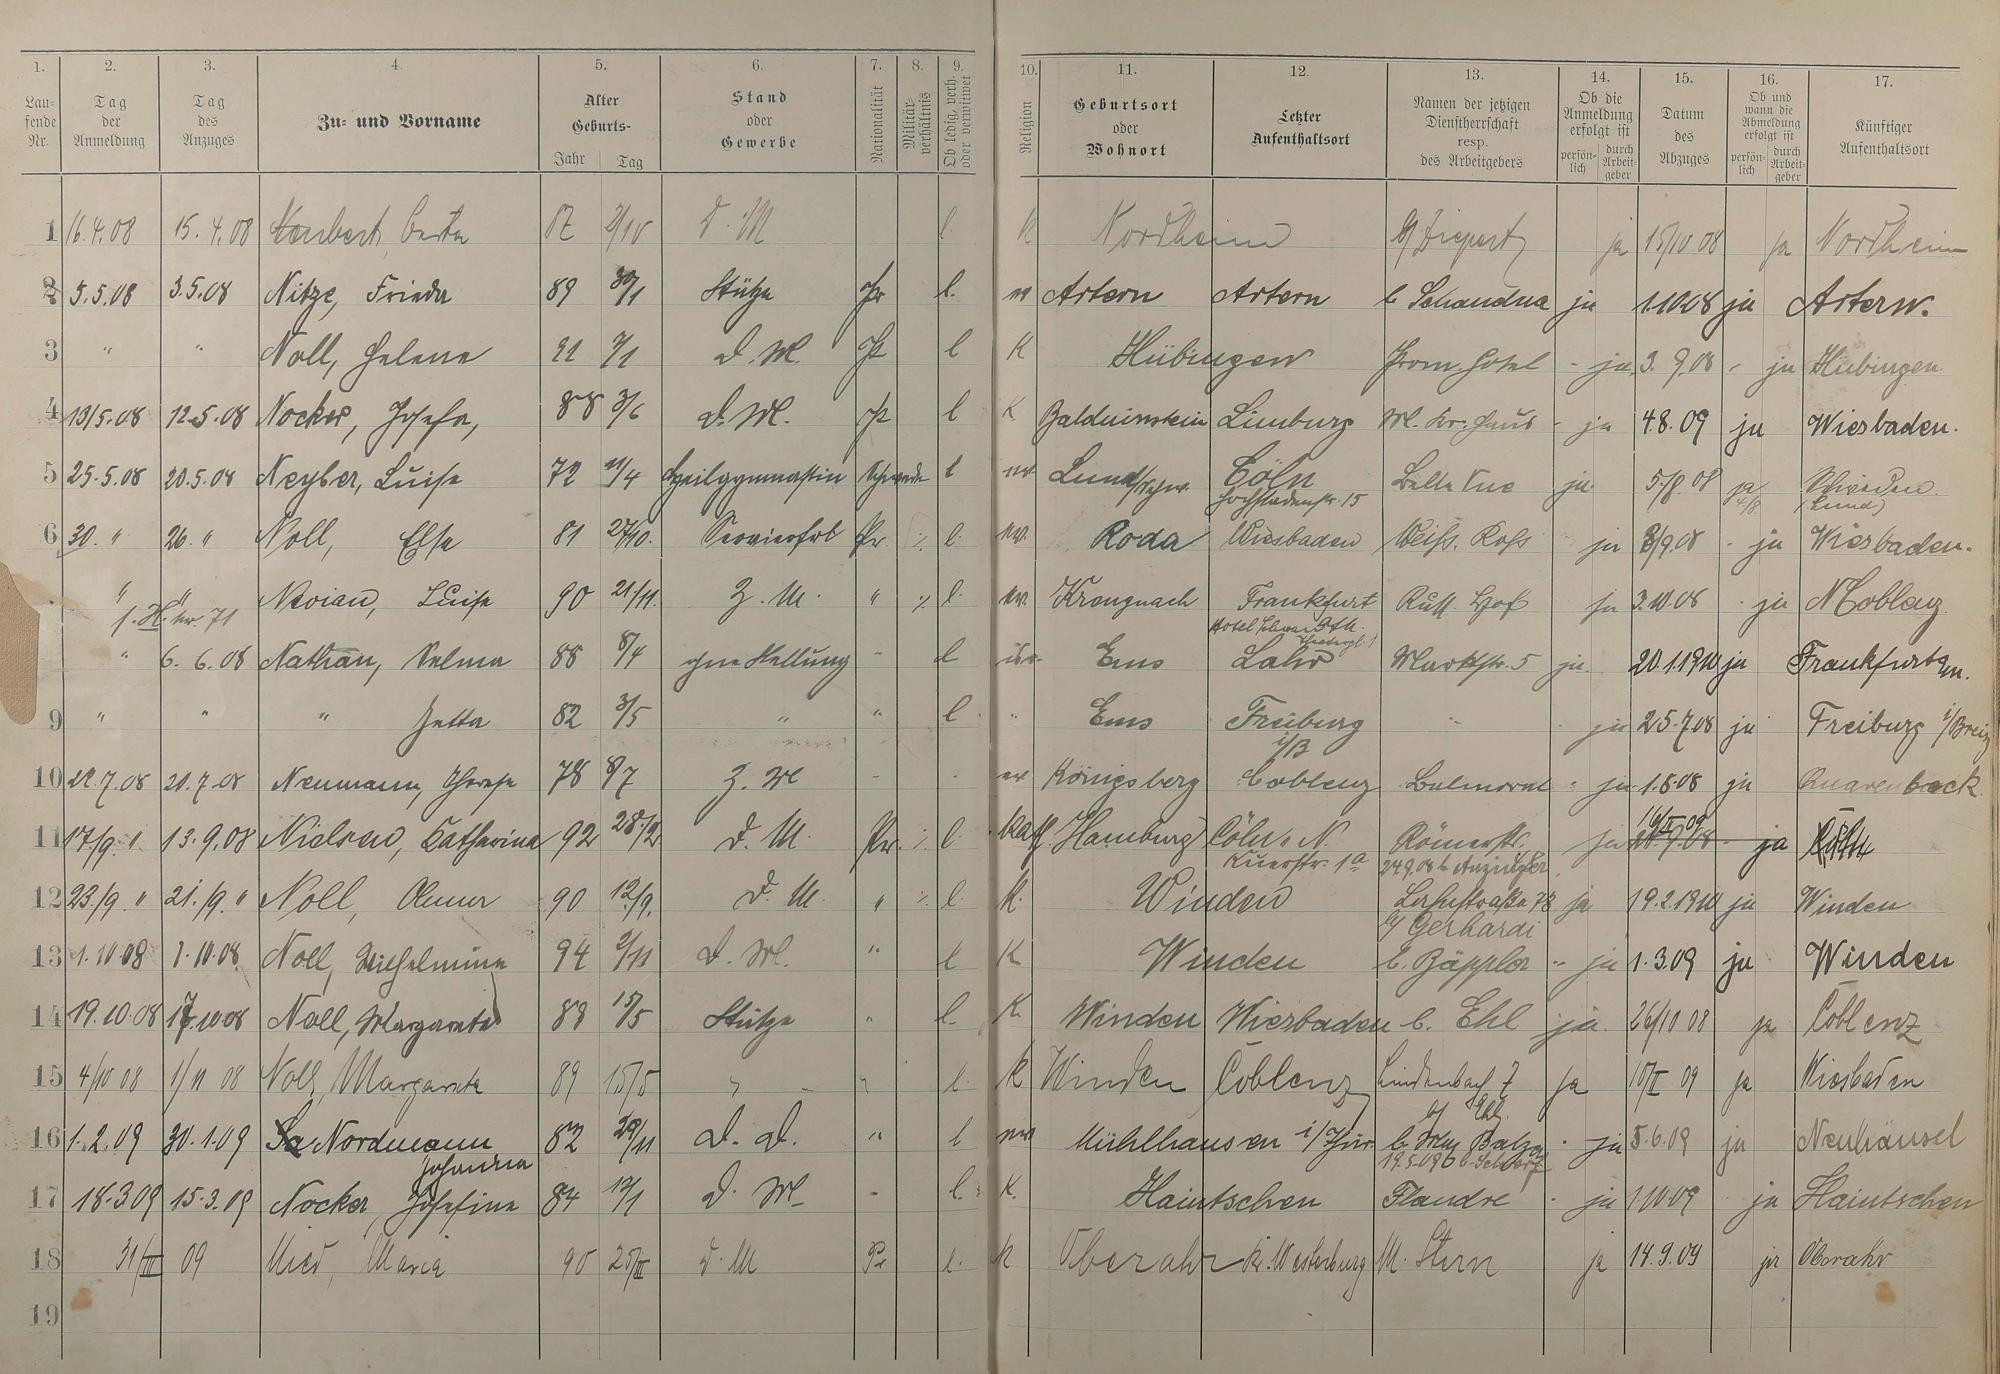 1. 2. 3. 4. 5. 6. 7. 8. 9. 10. 11. 12. 13. 14. 15. 16. 17.
Lau-
fende
Nr.
Tag
der
Anmeldung
Tag
des
Anzuges
Zu- und Vorname
Alter
Geburts-
Jahr Tag
Stand
oder
Gewerbe
Nationalität
Militär-
verhältnis
Ob ledig, verh.
oder verwitwet
Religion
Geburtsort
oder
Wohnort
Letzter
Aufenthaltsort
Namen der jetzigen
Dienstherrschaft
resp.
des Arbeitgebers
Ob die
Anmeldung
erfolgt ist
persön-
lich
durch
Arbeit-
geber
Datum
des
Abzuges
Ob und
wann die
Abmeldung
erfolgt ist
persön-
lich
durch
Arbeit-
geber
Künftiger
Aufenthaltsort
1 16.4.08 15.4.08 Berta 87 2/10 D. M l. k Nordheim ja 15/10 08 ja Nordheim
2 5.5.08 3.5.08 Nitze, Frieda 89 30/1 Stütze Pr l. ev Artern Artern b. Schandua ja 1.10.08 ja Artern.
3 " " Noll, Helene 91 7/1 D. M. Pr l K Hübingen Prom. Hotel - ja 3.9.08 - ja Hübingen
4 13/5.08 12.5.08 Nocker, Josefa, 88 3/6 D. M. Pr l K Balduinstein Limburg M. Kr. Haus - ja 4.8.09 ja Wiesbaden.
5 25.5.08 20.5.08 Neyber, Luise 72 11/4 Heilgymnastin Schwede l ev. Lund/Schw. Cöln Belle Vue ja 5/8.08 ja Schweden
Hochstadenstr. 15 4/8 (Lund)
6 30. " 26. " Noll, Else 81 27/10. Servierfrl Pr. ٪ l. ev. Roda Wiesbaden Weiss. Ross ja 8/9.08 - ja Wiesbaden.
" " Luise 90 21/11. Z. M. " ٪ l. ev. Kreuznach Frankfurt Russ. Hof ja 3.10.08 - ja Coblenz
f. H. nr. 71 Hotel
" 6.6.08 Nathan, Selma 88 8/4 ohne Stellung " l isr. Ems Lahr Marktstr. 5 ja 20.1.1910 ja Frankfurt a/m.
9 " " " Jetta 82 3/5 " " l " Ems Freiburg " - ja 25.7.08 ja Freiburg i/Breis
i/B
10 22.7.08 20.7.08 Neumann, Therese 78 8/7 Z. M - - ev Königsberg Coblenz Balmoral - ja 1.8.08 ja
11 17/9. " 13.9.08 Nielsen, Catharina 92 28./2 D. M. Pr. ٪ l. Kath. Hamburg Cöln a. N. Römerstr. ja 16/II 09 ja Köln
1a 24.9.08 b.
12 23./9 " 21./9. " Noll, Anna 90 12./9. D. M. " ٪ l. k. Winden Lahnstraße 78 ja 19.2.1910 ja Winden
b/ Gerhardi
13 1.10.08 1.10.08. Noll, Wilhelmine 94 2/11 D. M. " l K Winden b. Bäppler " ja 1.3.09 ja Winden
14 19.10.08 17.10.08 Noll, Margareta 89 15/5 Stütze " l. K Winden Wiesbaden b. Ehl ja 26/10 08 ja Coblenz
15 4/10 08 1/11 08 Noll, Margareta 89 15/5 " " l. k Winden Coblenz Lindenbach 7 ja 10/II 09 ja Wiesbaden
b/ Ehl.
16 1.2.09 30.1.09 Nordmann 82 29/11 D. D. " l ev Mühlhausen i/Thür b. Balzer - ja 5.6.09 ja Neuhäusel
Johanna 19.5.09
17 18.3.09 15.3.09 Nocker, Josefine 84 12/1 D. M. - l. K. Haintschen Flandre - ja 1.10.09 ja Haintschen
18 31/III 09 Maria 90 25/III D. M Pr l. k Oberahr Kr. Westerburg M. Stern ja 14.9.09 ja Oberahr
19